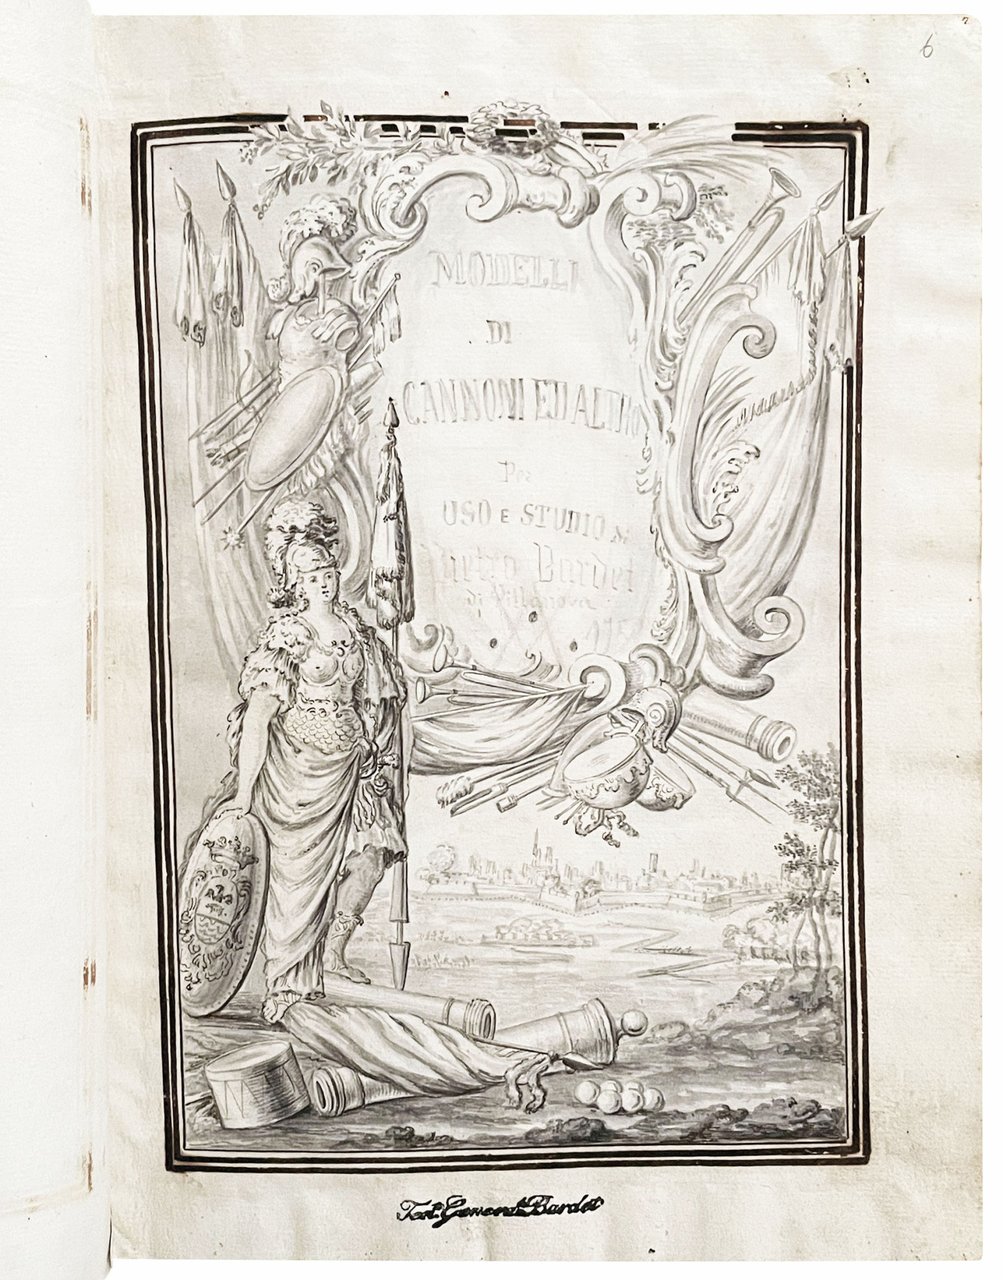 6
MODELLI
DI
CANNONI ED ALTRO
Per
USO E STUDIO di
Pietro Bardet
di Villanova
Genera Bardet